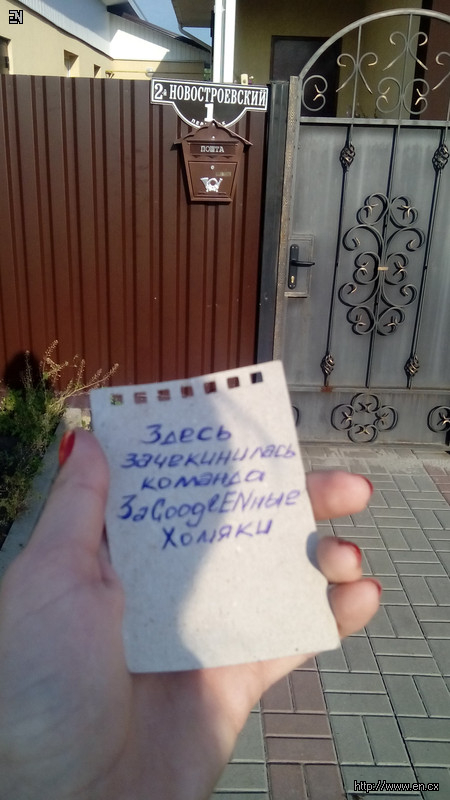 EN
2й НОВОСТРОЕВСКИЙ
1
ПОШТА
Здесь
зачекинилась
команда
ЗаGooglENные
Хомяки
http://www.en.cx